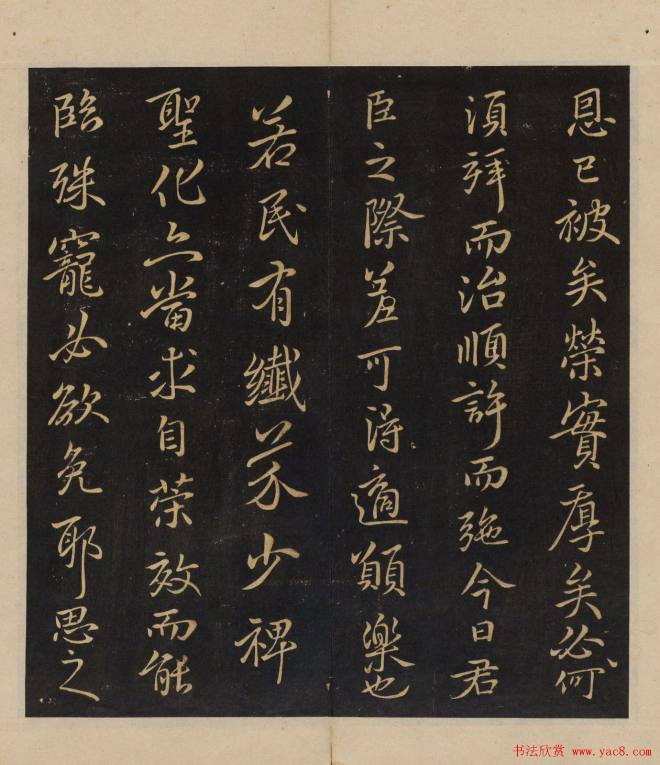 恩已被矣榮實厚矣必何
須拜而治順許而施今日君
臣之際差可得適願樂也
若民有纖芥少裨
聖化亦當求自榮效而能
臨殊寵必欲免耶思之
书法欣赏 www.yac8.com